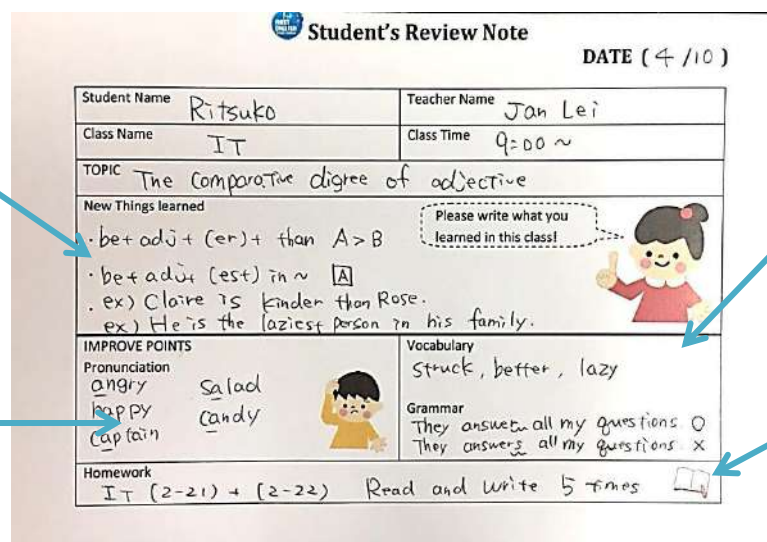 Student's Review Note
DATE ( 4 /10 )
Student Name Ritsuko
Teacher Name Jan Lei
Class Name IT
Class Time 9:00 ~
TOPIC The comparative digree of adjective
New Things learned
Please write what you
learned in this class!
· be + adj + (er) + than A > B
· be + adj + (est) in ~ A
. ex) Claire is kinder than Rose.
ex) He is the laziest person in his family.
IMPROVE POINTS
Pronunciation
angry salad
happy candy
captain
Vocabulary
struck, better, lazy
Grammar
They answer all my questions O
They answers all my questions. X
Homework
IT (2-21) + (2-22) Read and write 5 times